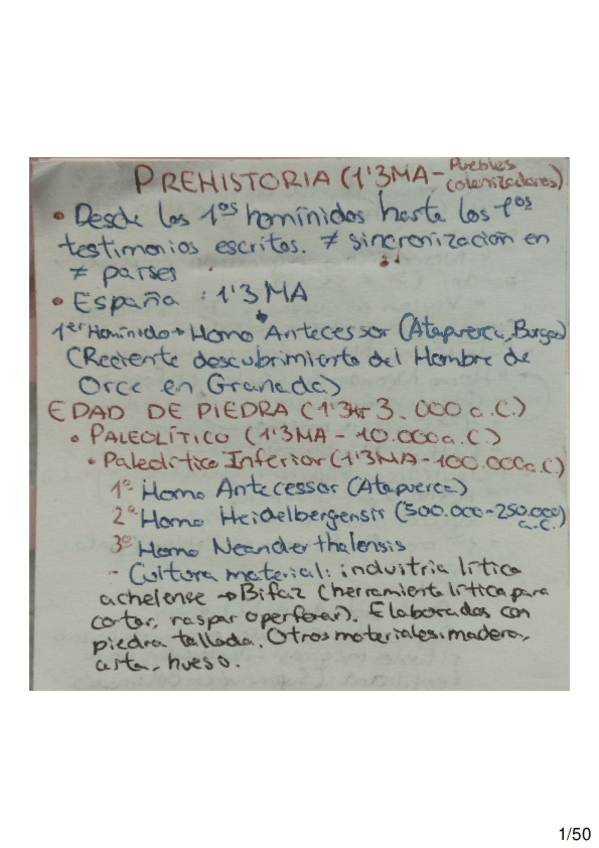 PREHISTORIA (1'3MA - Pueblos colonizadores)
• Desde los 1ºs homínidos hasta los 1ºs
testimonios escritos. ≠ sincronización en
≠ países
• España : 1'3 MA
1er Homínido → Homo Antecessor (Atapuerca, Burgos)
(Reciente descubrimiento del Hombre de
Orce en Granada)
EDAD DE PIEDRA (1'3 3.000 a.C.)
• PALEOLÍTICO (1'3MA - 10.000a.C.)
• Paleolítico Inferior (1'3MA - 100.000a.C)
1º Homo Antecessor (Atapuerca)
2º Homo Heidelbergensis (500.000-250.000 a.C.)
3º Homo Neanderthalensis
- Cultura material: industria lítica
achelense → Bifaz (herramienta lítica para
cortar, raspar o perforar). Elaborados con
piedra tallada. Otros materiales: madera,
asta, hueso.
1/50